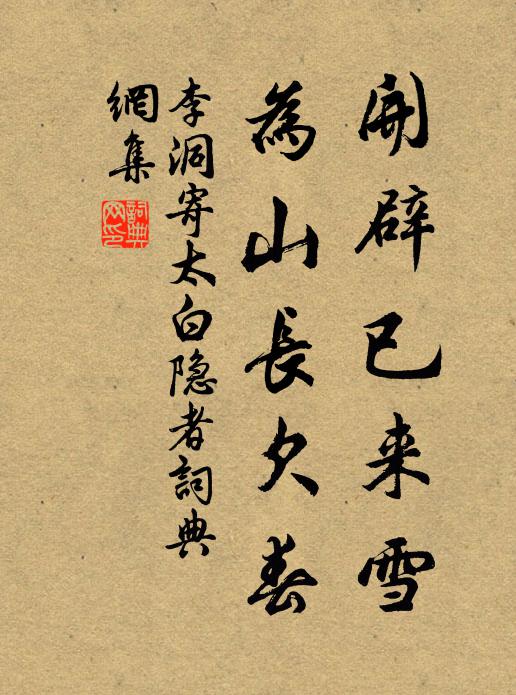 開辟已来雪
為山長欠春
李洞寄太白隐者詞典
網集
詞典
网印